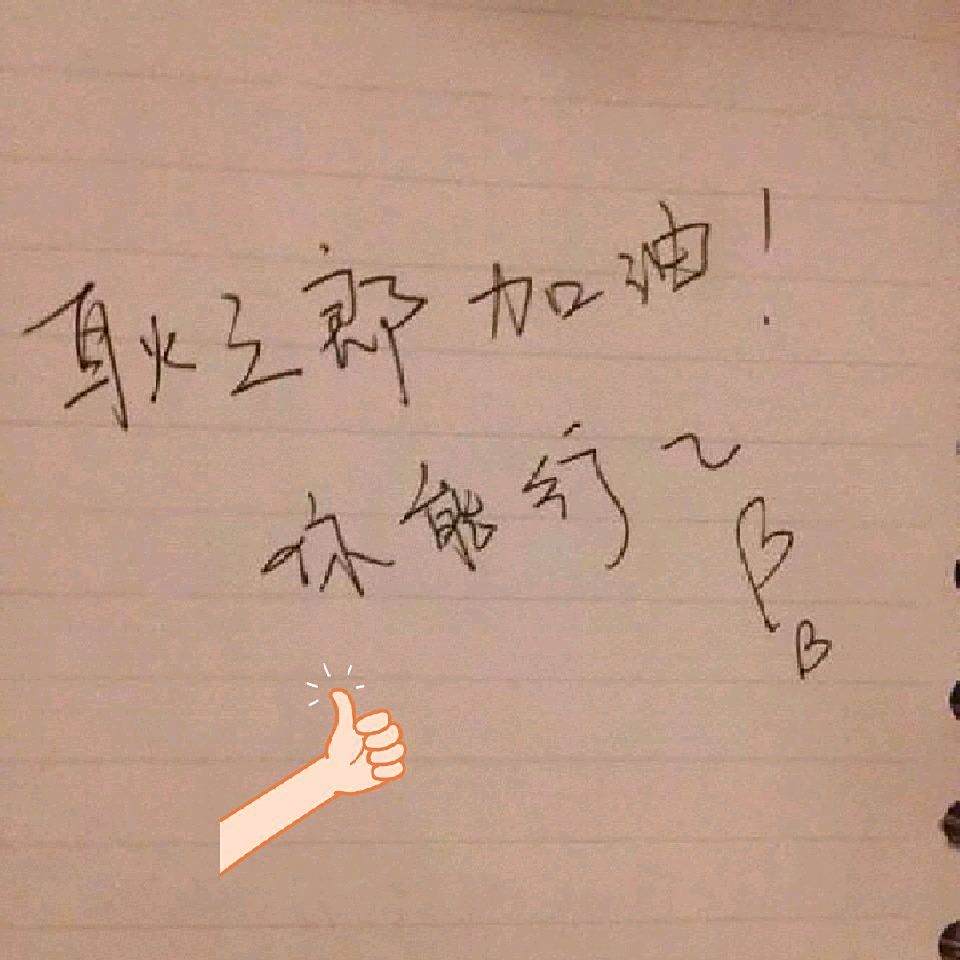 耿三郎 加油!
你能行~